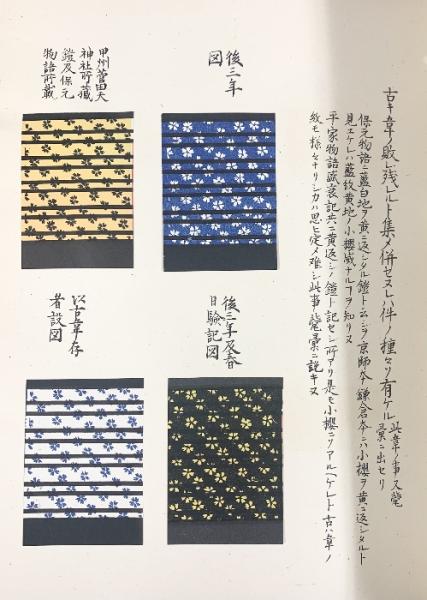 古キ韋ノ敗レ残レルト集メ併セヌレハ件ノ種々有ケル
此韋ノ事又鎧
彙ニ出セリ
保元物語ニ藍白地ヲ黄ニ返シタル鎧ト云シヲ京師本鎌倉本ニハ小櫻ヲ黄ニ返シタルト
見エケレハ藍紋黄地ノ小櫻威ナルヿヲ知リヌ
平家物語盛衰記共ニ黄返シノ鎧ト記セシ所アリ是モ小櫻ニソアルヘケレト古ハ韋ノ
紋モ様々ナリシカハ思ヒ定メ難シ此事鎧彙ニ説キヌ
後三年
図
甲州菅田天
神社所蔵
鎧及保元
物語所載
後三年及春
日験記図
以古韋存
者設図